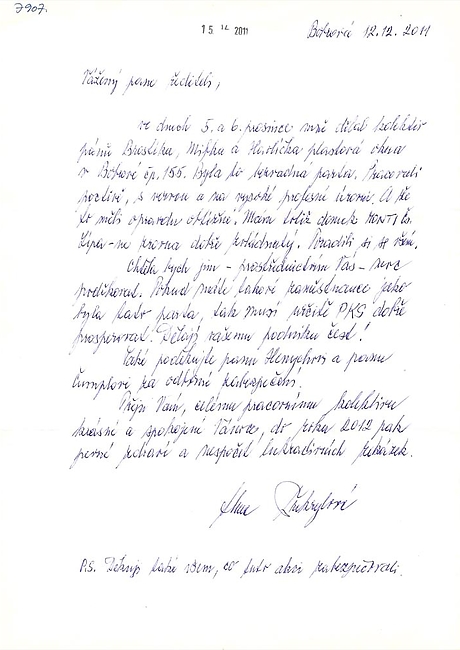 7907.
15 12 2011
Bobrová 12.12.2011
Vážený pane řediteli,
ve dnech 5. a 6. prosince mně dělal kolektiv
pánů Brostíka, Mifka a Havlíčka plastová okna
v Bobrové čp. 155. Byla to parta. Pracovali
poctivě, s vervou a na vysoké profesní úrovni. A že
to měli opravdu obtížné. Mám totiž domek
zrovna dobře Poradili si se vším.
Chtěla bych jim - prostřednictvím Vás - moc
poděkovat. Pokud máte takové zaměstnance jako
byla tato parta, tak musí určitě PKS dobře
prosperovat. Dělají vašemu podniku čest!
Také poděkujte panu a panu
za odborné zabezpečení.
Přeji Vám, celému pracovnímu kolektivu
krásné a spokojené Vánoce, do roku 2012 pak
pevné zdraví a nespočet lukrativních zakázek.
P.S. Děkuji také všem, co tuto akci zabezpečovali.